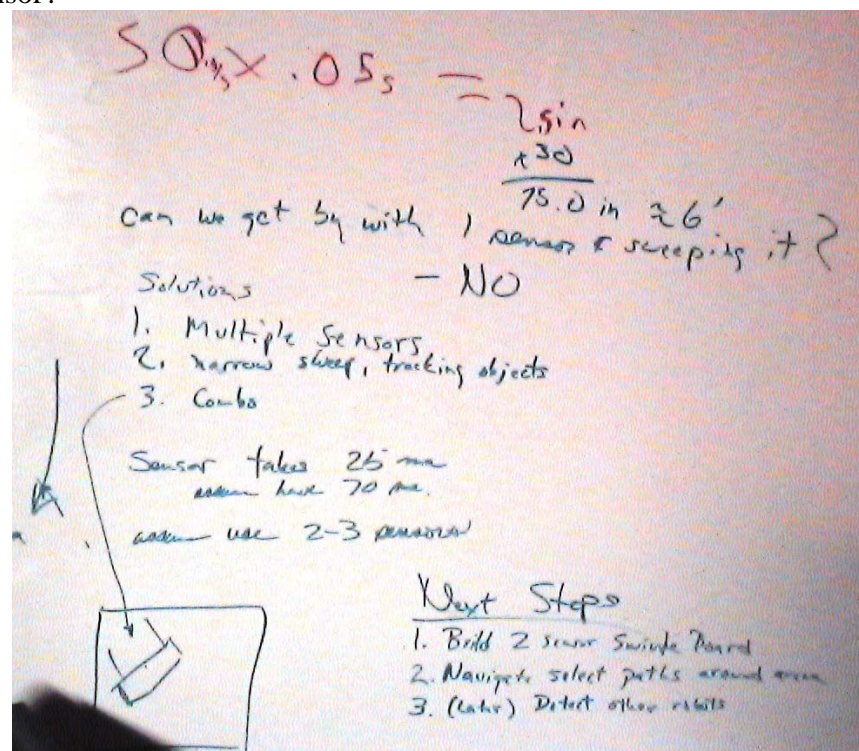 nsor?
50 in/s x .05s = 2.5in
+30
75.0 in ≈ 6'
Can we get by with 1 sensor & sweeping it?
- NO
Solutions
1. Multiple Sensors
2. narrow sweep, tracking objects
3. Combo
Sensor takes 25 ma
assum have 70 ma.
assum use 2-3 sensors
Next Steps
1. Build 2 sensor Board
2. Navigate select paths around area
3. (Later) Detect other robots